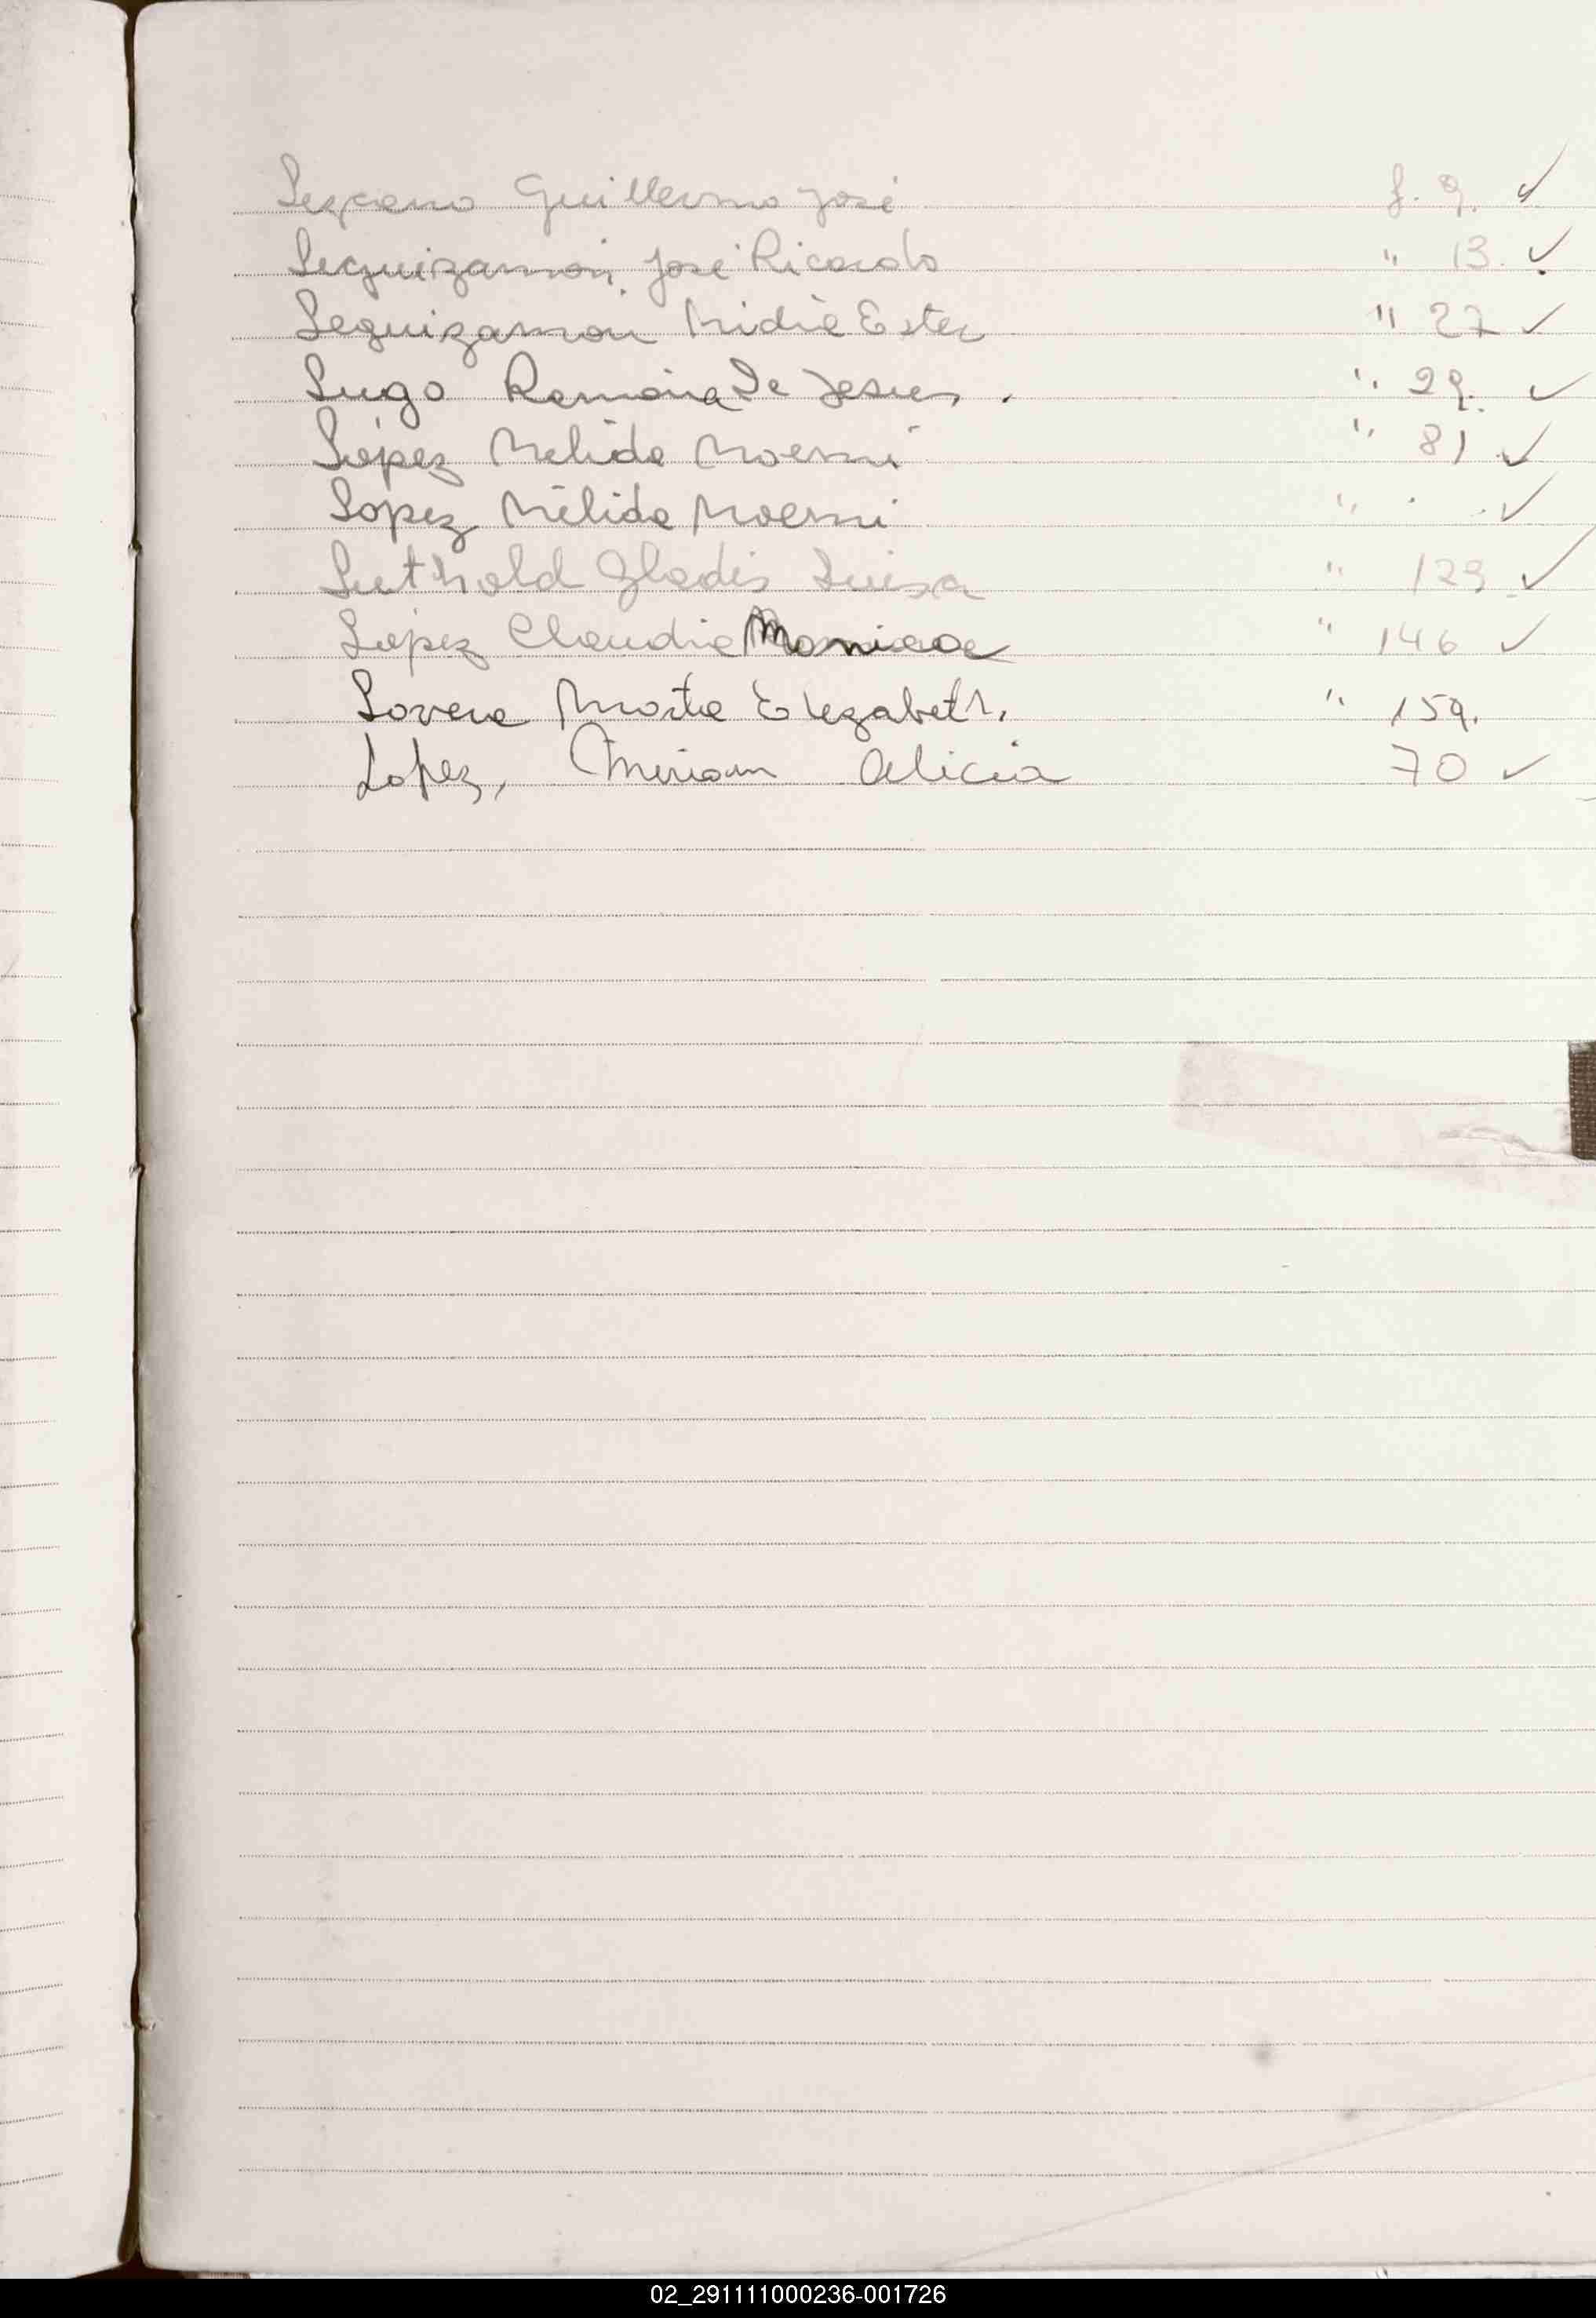 Lezcano Guillermo José f. 9. ✓
Leguizamón José Ricardo " 13. ✓
Leguizamón Nidia Ester " 27 ✓
Lugo Ramona De Jesus. " 29. ✓
López Nelida Noemi " 81 ✓
Lopez Nélida Noemi " ✓
Luthold Gladis Luisa " 129 ✓
López Claudia Monica " 146 ✓
Lovera Marta Elezabeth. " 159.
Lopez, Miriam Alicia 70 ✓
02_291111000236-001726